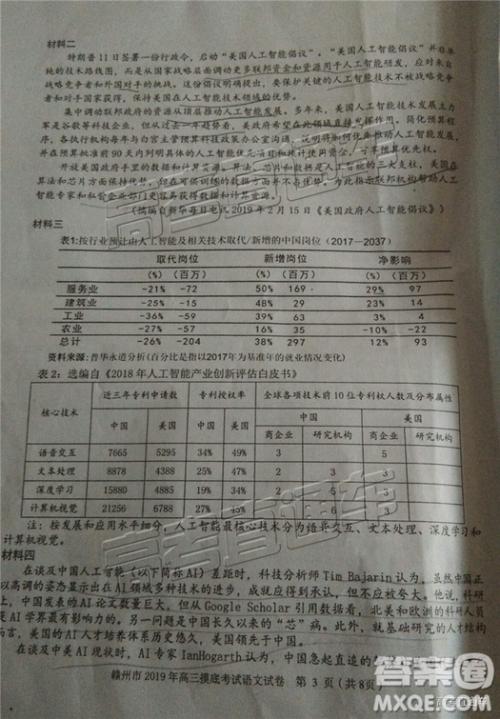 材料二
特朗普11日签署一份行政令，启动“美国人工智能倡议”。“美国人工智能倡议”并非单
纯的技术路线图，而是从国家战略层面调动更多联邦资金和资源用于人工智能研发，应对来自
战略竞争者和外国对手的挑战。这份倡议明确提出，要保护关键的人工智能技术不被战略竞争
者和对手国家获得，保持美国在人工智能技术领域的优势。
集中调动联邦政府的资源从顶层推动人工智能发展。多年来，美国人工智能技术发展主力
军是谷歌等科技企业，但从过去一年趋势看，美政府希望在此领域
程序，各执行机构每年与白宫主管
并在预算批准前90天内列明具体的人工智能优先项目和预计使用资金
开放美国政府手里的数据和计算资源。算法、芯片和数据是人工智能的三大支柱，美国在
算法和芯片方面保持优势，但在可供训练的数据方面并不占优势。
智能专家和私营企业部门更容易获得数据和计算资源。
（摘编自新华每日电讯2019年2月15日《美国政府人工智能倡议》）
材料三
表1:按行业预计由人工智能及相关技术取代/新增的中国岗位（2017—2037）
取代岗位 新增岗位 净影响
(%) (百万) (%) (百万) (%) (百万)
服务业 -21% -72 50% 169 29% 97
建筑业 -25% -15 48% 29 23% 14
工业 -36% -59 39% 63 3% 4
农业 -27% -57 16% 35 -10% -22
总计 -26% -204 38% 297 12% 93
资料来源：普华永道分析(百分比是指以2017年为基准年的就业情况变化)
表2：选编自《2018年人工智能产业创新评估白皮书》
核心技术 近三年专利申请数 专利授权率 全球各项技术前10位专利权人数及分布属性
中国 美国 中国 美国 中国 美国
商企业 研究机构 商企业 研究机构
语音交互 7665 5295 34% 49% 3 5
文本处理 8878 4388 25% 47% 2
深度学习 15880 4885 19% 34% 2
计算机视觉 21256 6788 27% 45%
注：按发展和应用水平细分，人工智能最核心技术分为语音交互、文本处理、深度学习和
计算机视觉。
材料四
在谈及中国人工智能（以下简称AI）差距时，科技分析师Tim Bajarin认为，虽然中国正
以高调的姿态显示出在AI领域多种技术的进步，成就应得到承认，但不应被夸大。他说，科研
上，中国发表的AI论文数量巨大。但从Google Scholar引用数据看，北美和欧洲的科研人员
是AI学界最有影响力的。另一问题是中国长久以来的“芯”病。此外，就基础研究的人才结构
而言，美国的AI人才培养体系历史悠久，美国领先于中国。
在谈及中美AI现状时，AI专家IanHogarth认为，中国急起直追的
赣州市2019年高三摸底考试语文试卷 第 3 页（共8页）
高考直通车
答案圈
MXQE.COM